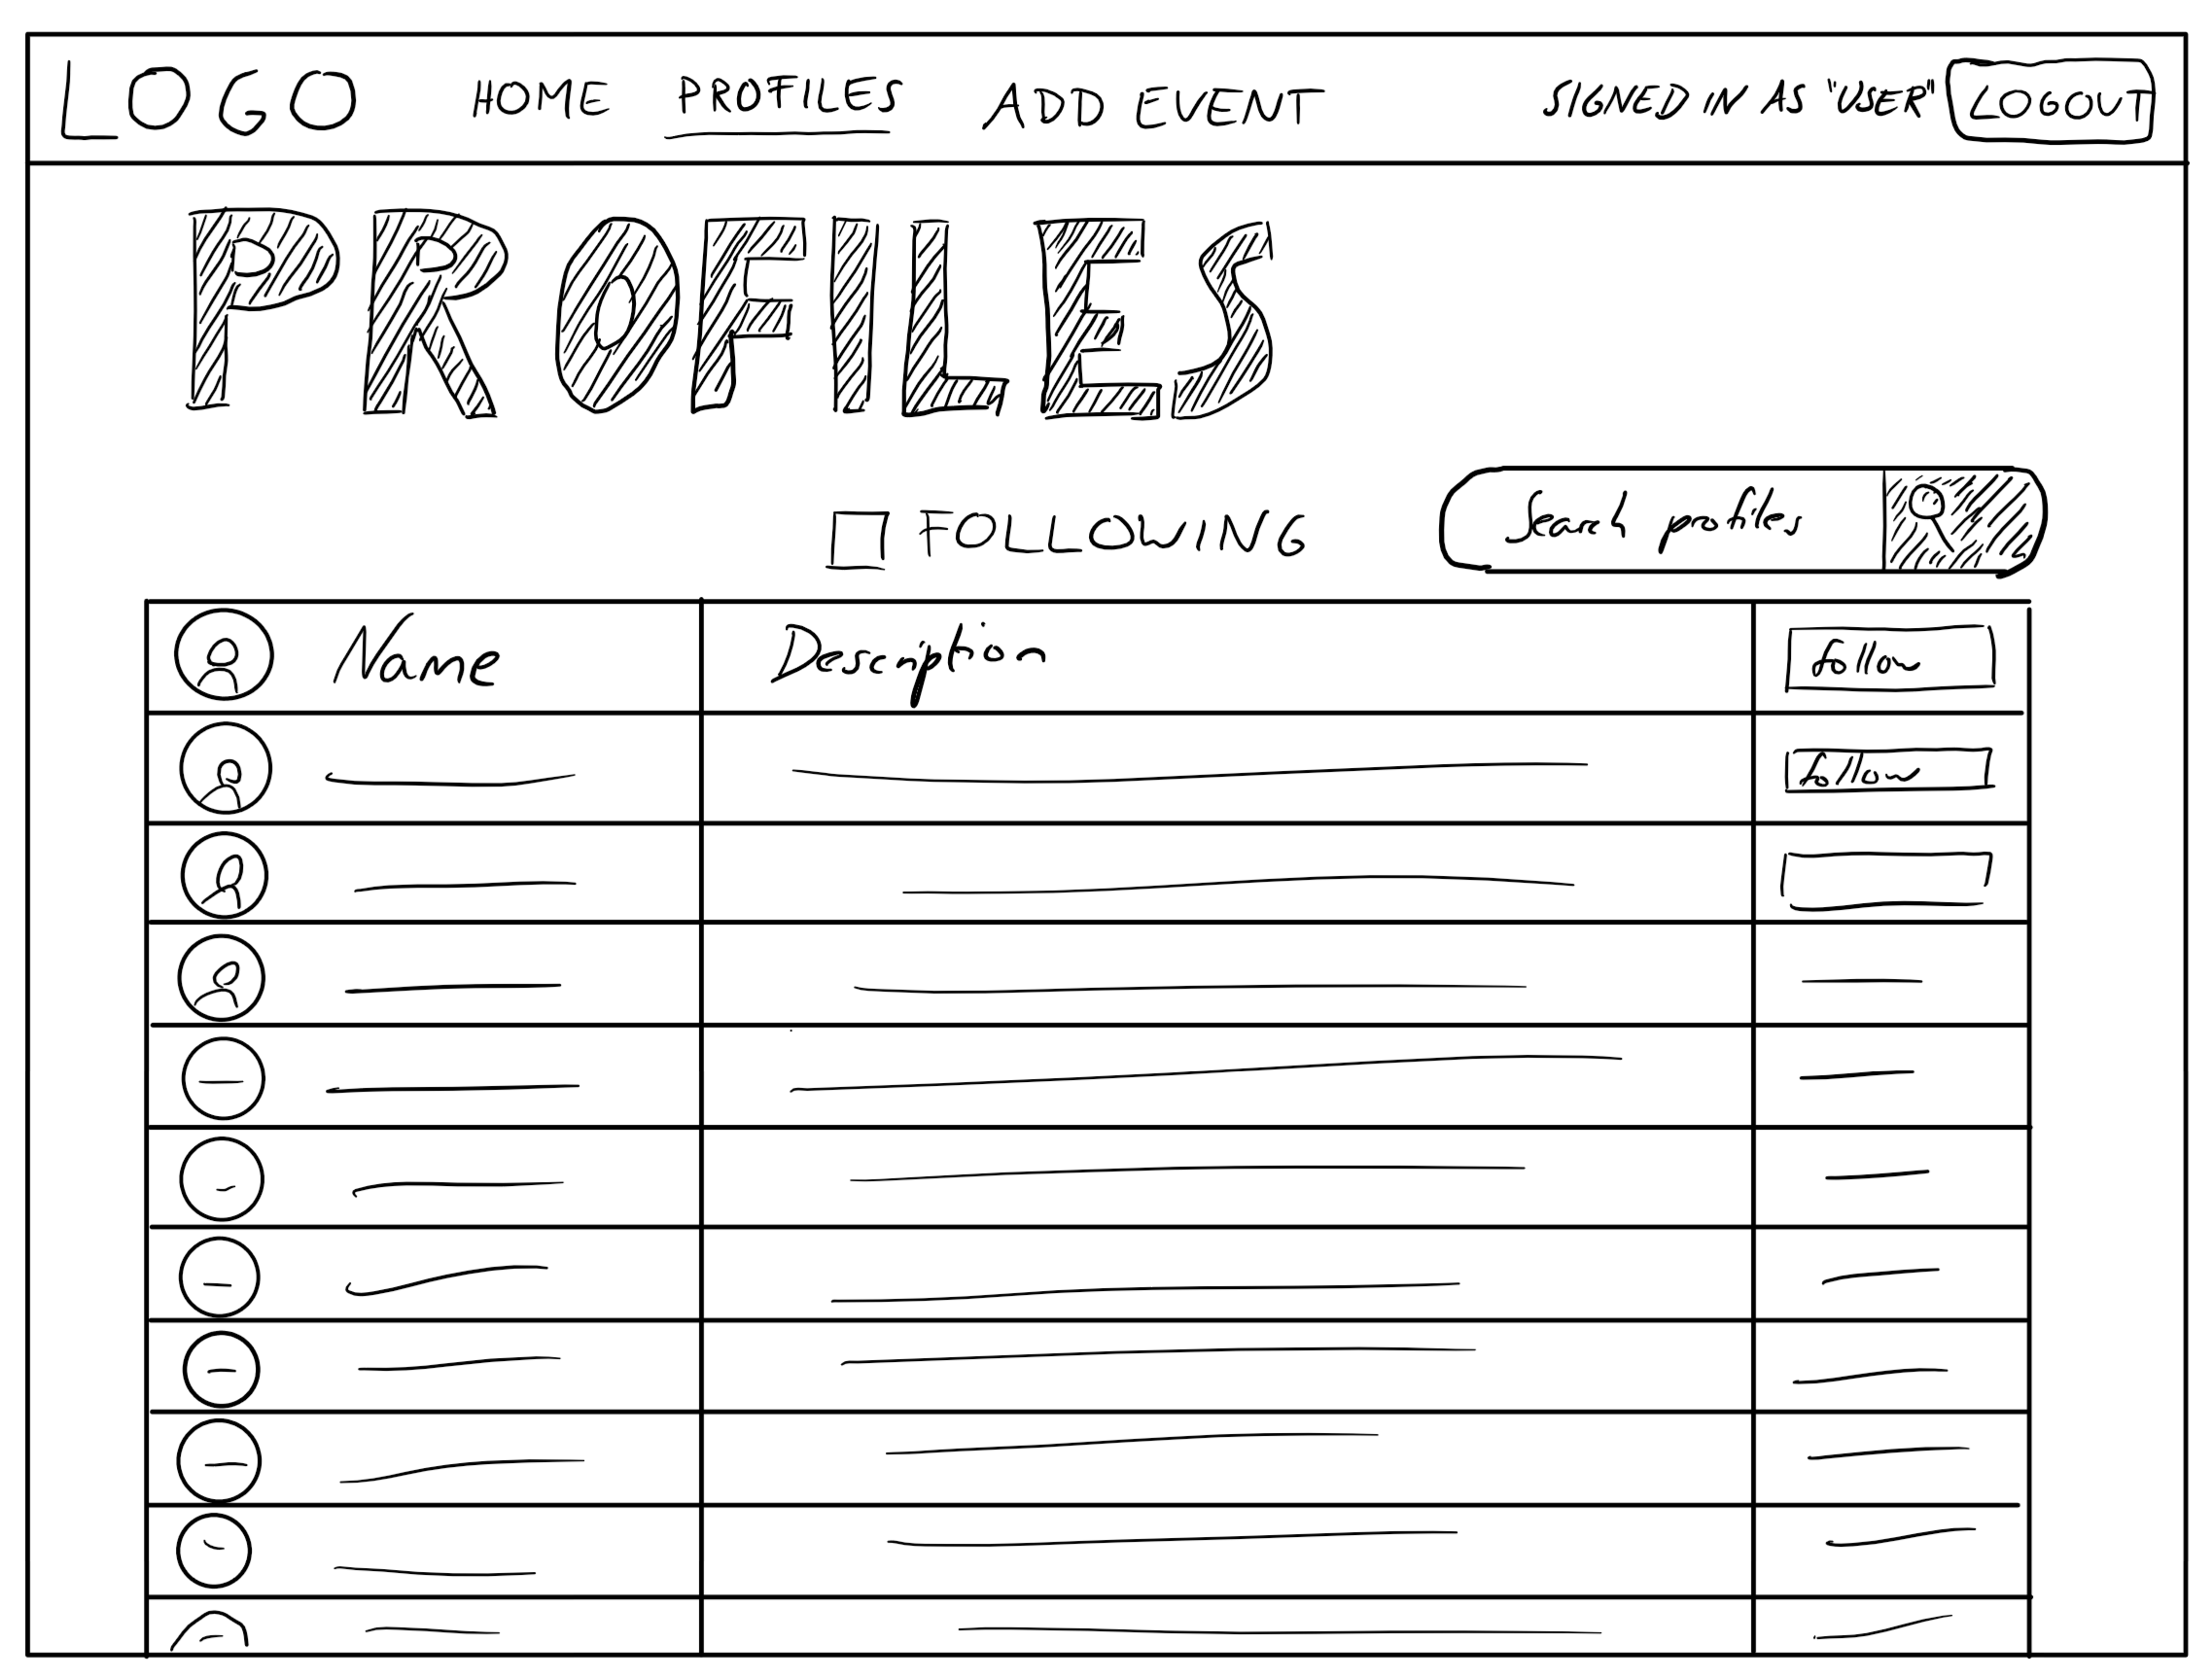 LOGO HOME PROFILES ADD EVENT SIGNED IN AS "USER" LOGOUT
PROFILES
FOLLOWING Search profiles
Name Description follow
follow